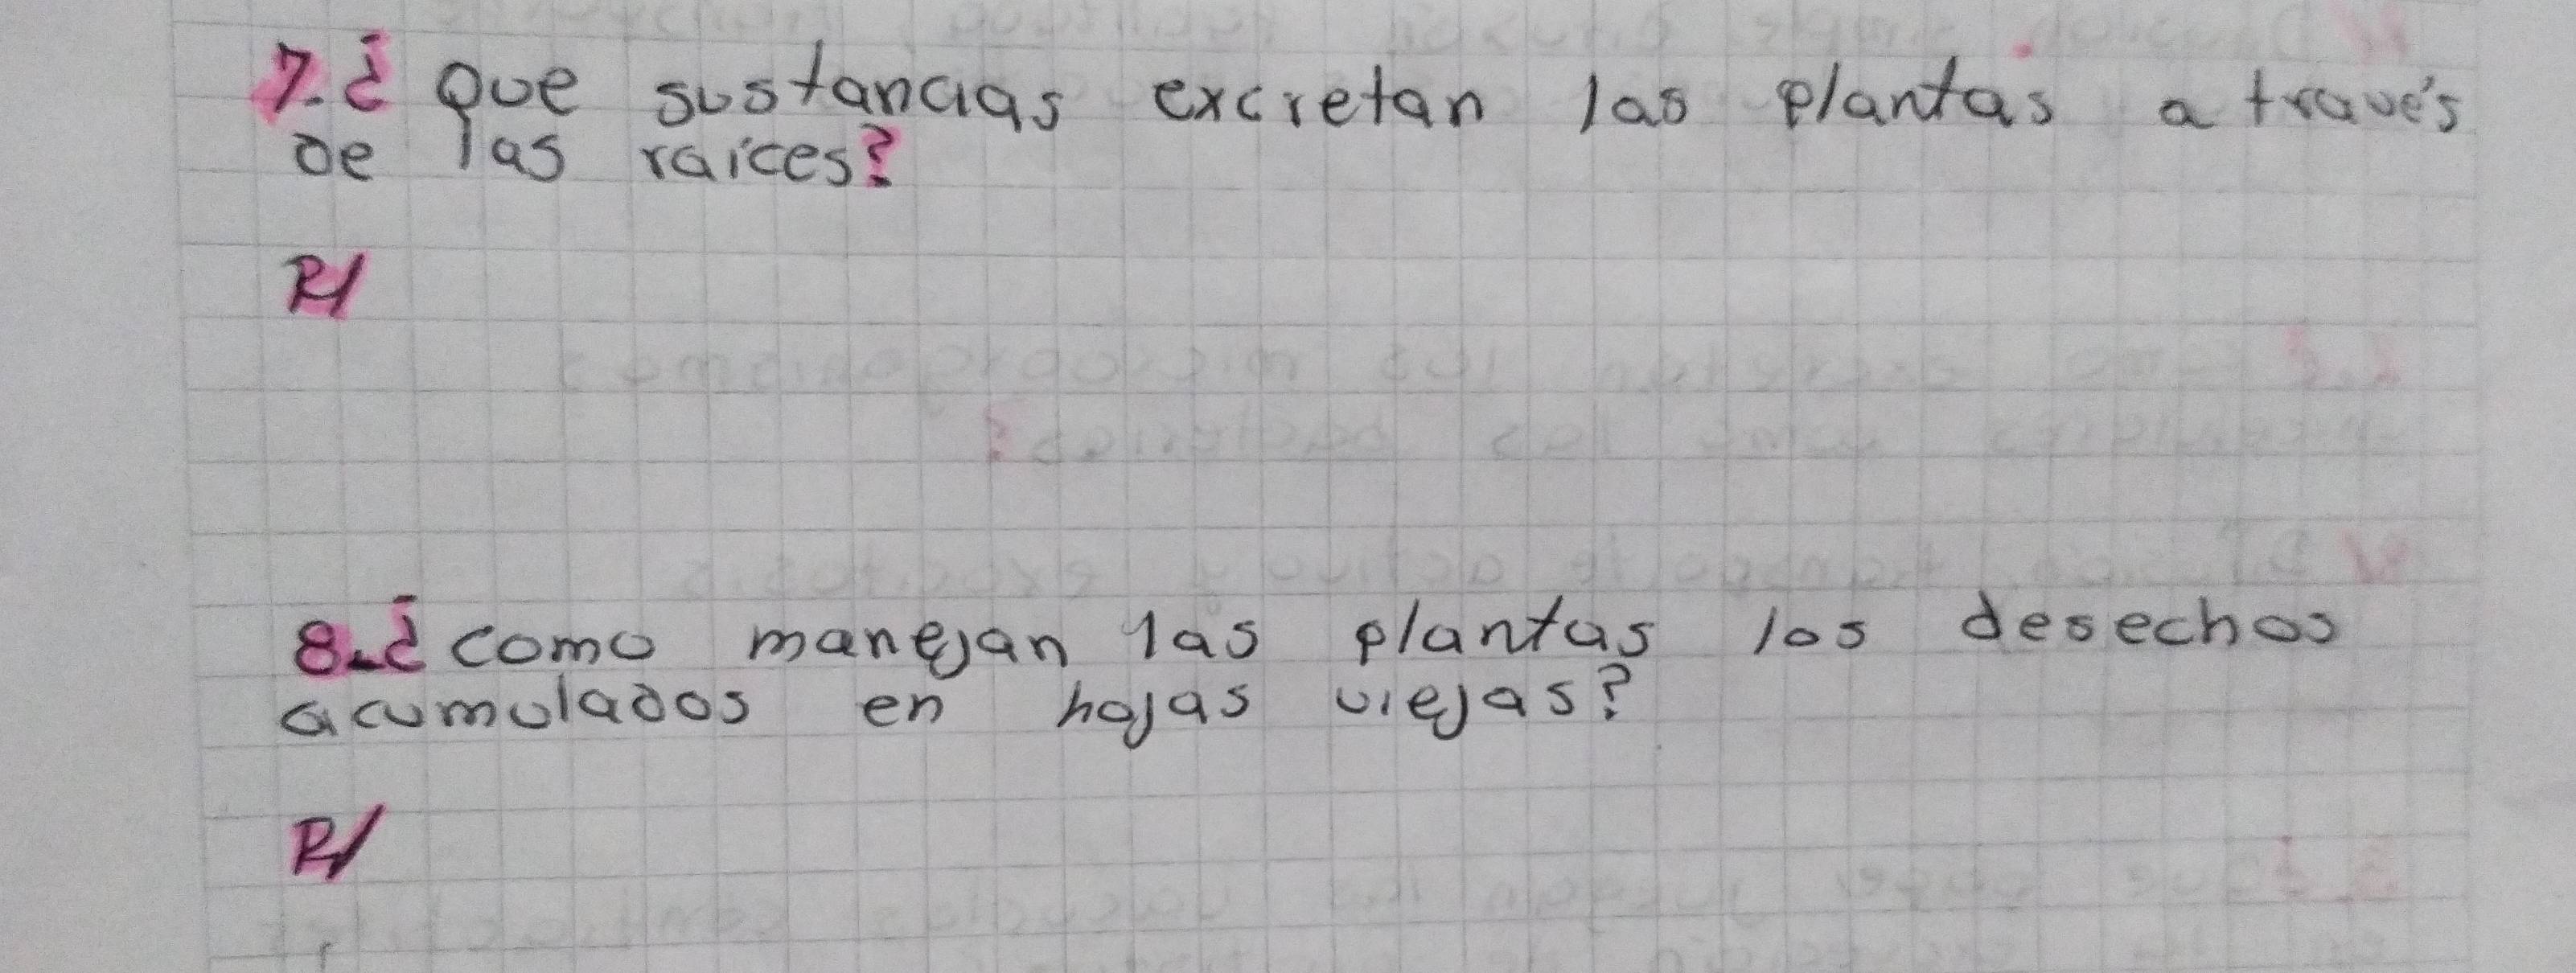 7.¿ Que sustancias excretan las plantas a través
de las raíces?
R/
8.¿ como manejan las plantas los desechos
acumulados en hojas viejas?
R/